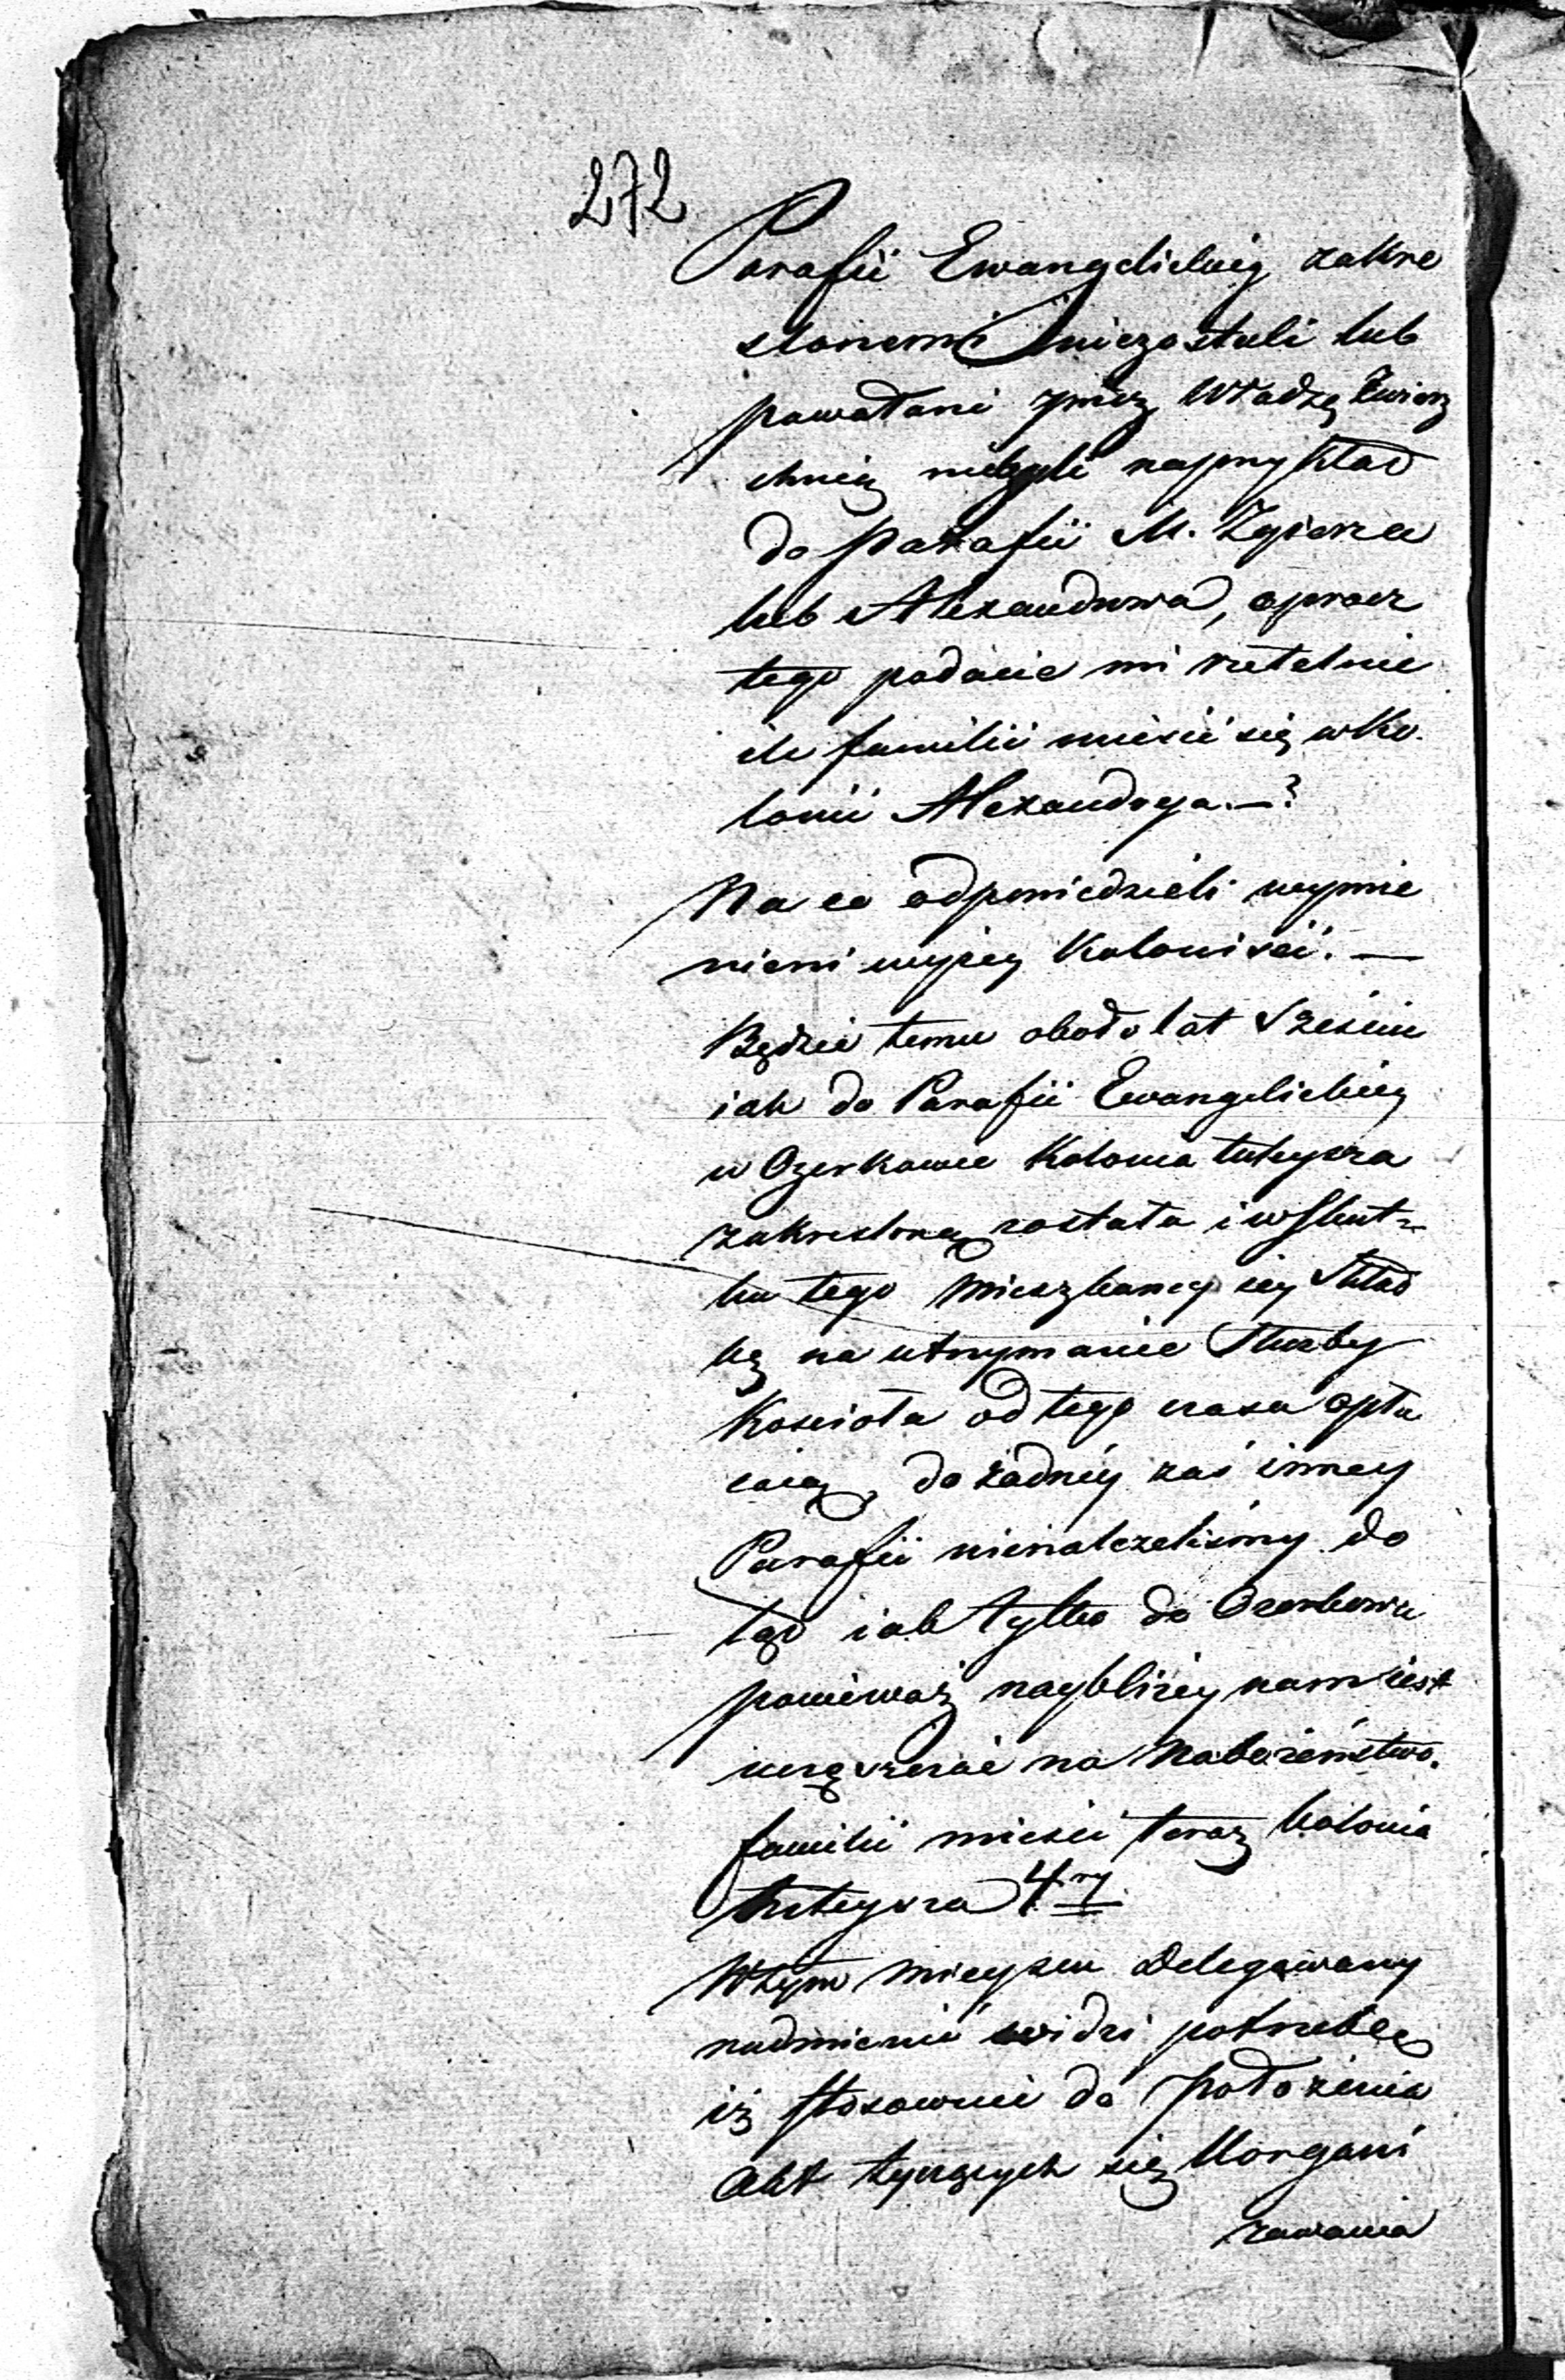 272
Parafii Ewangelickiej zakre
slonemi niezostali lub
powołani przez Władzę Zwierz
chnią niebyli naprzykład
do Parafii M. Zgierza
lub Alexandrowa, oprocz
tego podacie mi rzetelnie
ile familii mieści się w Ko
lonii Alexandrya. —?
Na co odpowiedzieli wymie
nieni wyżey Koloniści. —
Będzie temu około lat sześciu
iak do Parafii Ewangelickiey
w Ozorkowie Kolonia tuteysza
zakreśloną została i wskut-
ku tego Mieszkancy iey skład
kę na utrzymanie Służby
Kościoła od tego czasu opła
caią, do żadnéy zaś inney
Parafii nienależeliśmy do
tąd iak tylko do Ozorkowa
ponieważ naybliżey nam iest
uczęszczać na Nabożeństwo.
familii mieści teraz Kolonia
tuteysza 4ry
W tym mieyscu Delegowany
nadmienić widzi potrzebę
iż stosownie do położenia
Akt tyczących się Uorgani
zowania